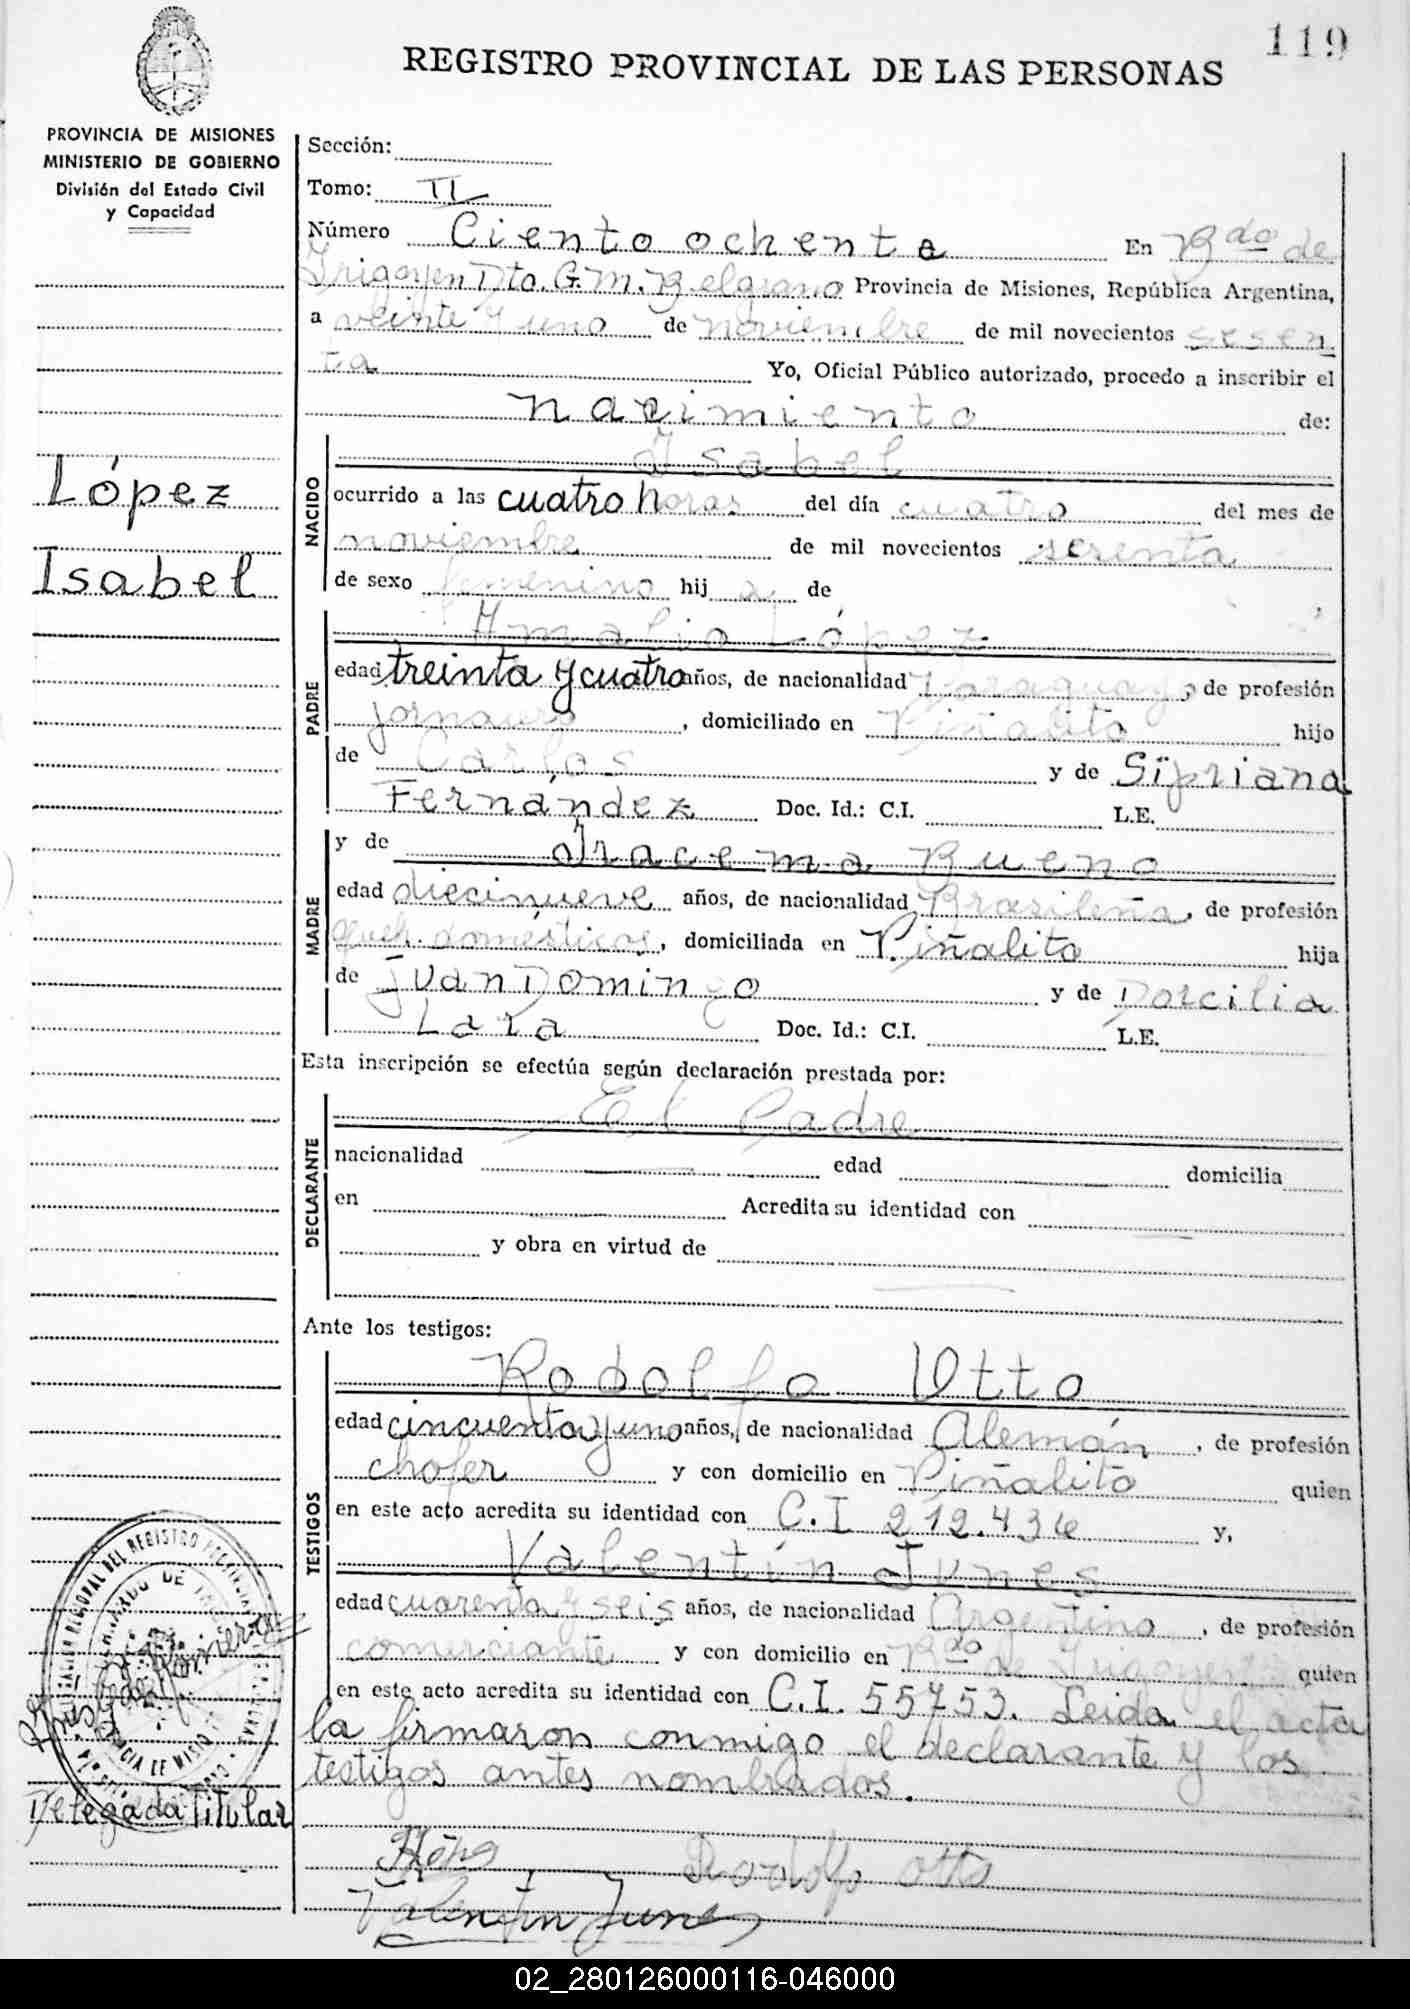 119
REGISTRO PROVINCIAL DE LAS PERSONAS
PROVINCIA DE MISIONES
MINISTERIO DE GOBIERNO
División del Estado Civil
y Capacidad
López
Isabel
Sección:
Tomo: II
Número Ciento ochenta En Bdo de
Irigoyen Dto. G. M. Belgrano Provincia de Misiones, República Argentina,
a veinte y uno de noviembre de mil novecientos sesen
ta Yo, Oficial Público autorizado, procedo a inscribir el
nacimiento de:
NACIDO
Isabel
ocurrido a las cuatro horas del día cuatro del mes de
noviembre de mil novecientos sesenta
de sexo femenino hij a de
PADRE
Amalio López
edad treinta y cuatro años, de nacionalidad Paraguayo, de profesión
jornalero, domiciliado en Piñalito hijo
de Carlos y de Sipriana
Fernández Doc. Id.: C.I. L.E.
MADRE
y de Iracema Bueno
edad diecinueve años, de nacionalidad Brasileña, de profesión
queh. domésticos, domiciliada en Piñalito hija
de Juan Domingo y de Dorcilia
Lara Doc. Id.: C.I. L.E.
Esta inscripción se efectúa según declaración prestada por:
DECLARANTE
El Padre
nacionalidad edad domicilia
en Acredita su identidad con
y obra en virtud de
Ante los testigos:
TESTIGOS
Rodolfo Otto
edad cincuenta y uno años, de nacionalidad Alemán, de profesión
chofer y con domicilio en Piñalito quien
en este acto acredita su identidad con C.I 212.436 y,
Valentín Junes
edad cuarenta y seis años, de nacionalidad Argentino, de profesión
comerciante y con domicilio en Bdo de Irigoyen quien
en este acto acredita su identidad con C.I. 55753. Leida el acta
la firmaron conmigo el declarante y los
testigos antes nombrados.
Delegada Titular
Rodolfo Otto
Valentín Junes
02_280126000116-046000